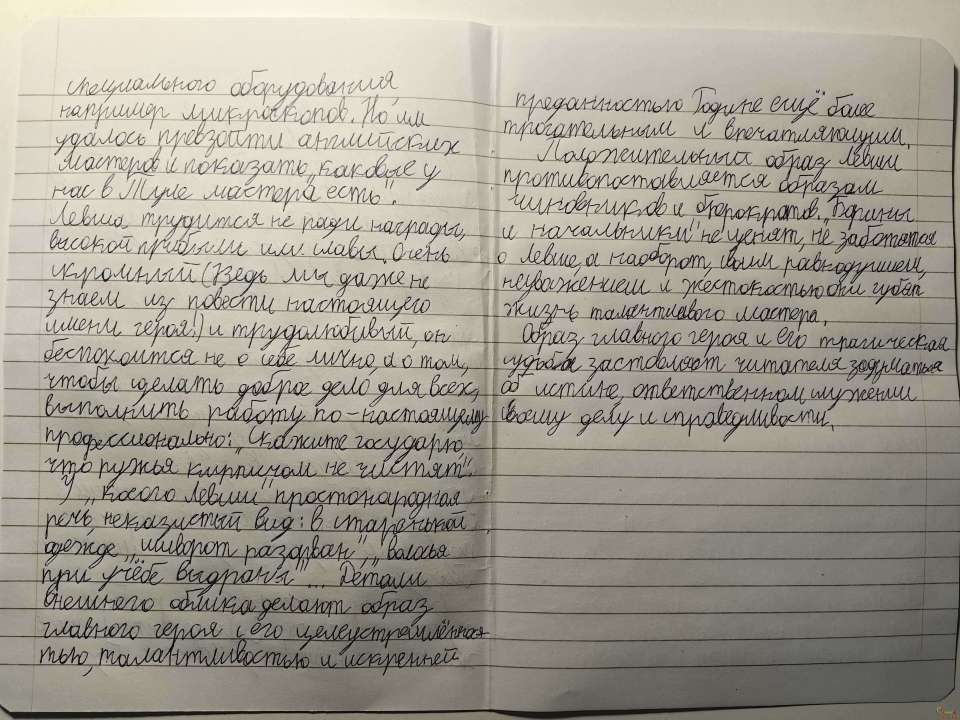 специального оборудования
например микроскопов. Но им
удалось превзойти английских
мастеров и показать, „каковые у
нас в Туле мастера есть".
Левша трудится не ради награды,
высокой прибыли или славы. Очень
скромный (ведь мы даже не
знаем из повести настоящего
имени героя!) и трудолюбивый, он
беспокоится не о себе лично, а о том,
чтобы сделать доброе дело для всех,
выполнить работу по-настоящему
профессионально: „Скажите государю,
что ружья кирпичом не чистят".
У „косого Левши" простонародная
речь, неказистый вид: в старенькой
одежде, „шиворот разорван", „волосья
при учёбе выдраны"... Детали
внешнего облика делают образ
главного героя с его целеустремлённос-
тью, талантливостью и искренней
преданностью Родине ещё более
трогательным и впечатляющим.
Положительный образ Левши
противопоставляется образам
чиновников и бюрократов. „Барины
и начальники" не ценят, не заботятся
о Левше, а наоборот, своим равнодушием,
неуважением и жестокостью они губят
жизнь талантливого мастера.
Образ главного героя и его трагическая
судьба заставляют читателя задуматься
об истине, ответственном служении
своему делу и справедливости.